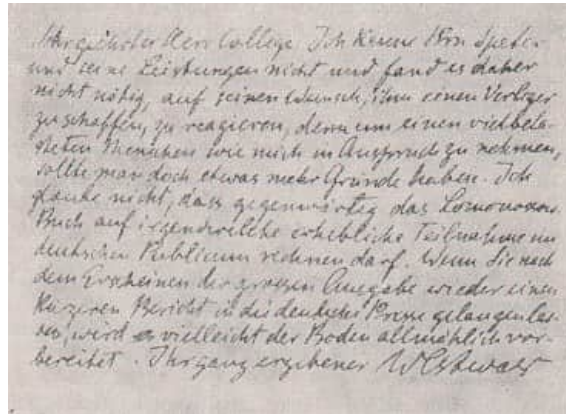 Sehr geehrter Herr College. Ich kenne Hrn Speter
und seine Leistungen nicht und fand es daher
nicht nötig, auf seinen Wunsch, ihm einen Verleger
zu schaffen, zu reagieren, denn um einen vielbela-
steten Menschen wie mich in Anspruch zu nehmen,
sollte man doch etwas mehr Gründe haben. Ich
glaube nicht, dass gegenwärtig das Lomonossow
Buch auf irgendwelche erhebliche Teilnahme im
deutschen Publicum rechnen darf. Wenn Sie nach
dem Erscheinen der grossen Ausgabe wieder einen
kürzeren Bericht in die deutsche Presse gelangen las-
sen, wird es vielleicht der Boden allmählich vor-
bereitet. Ihr ganz ergebener W Ostwald